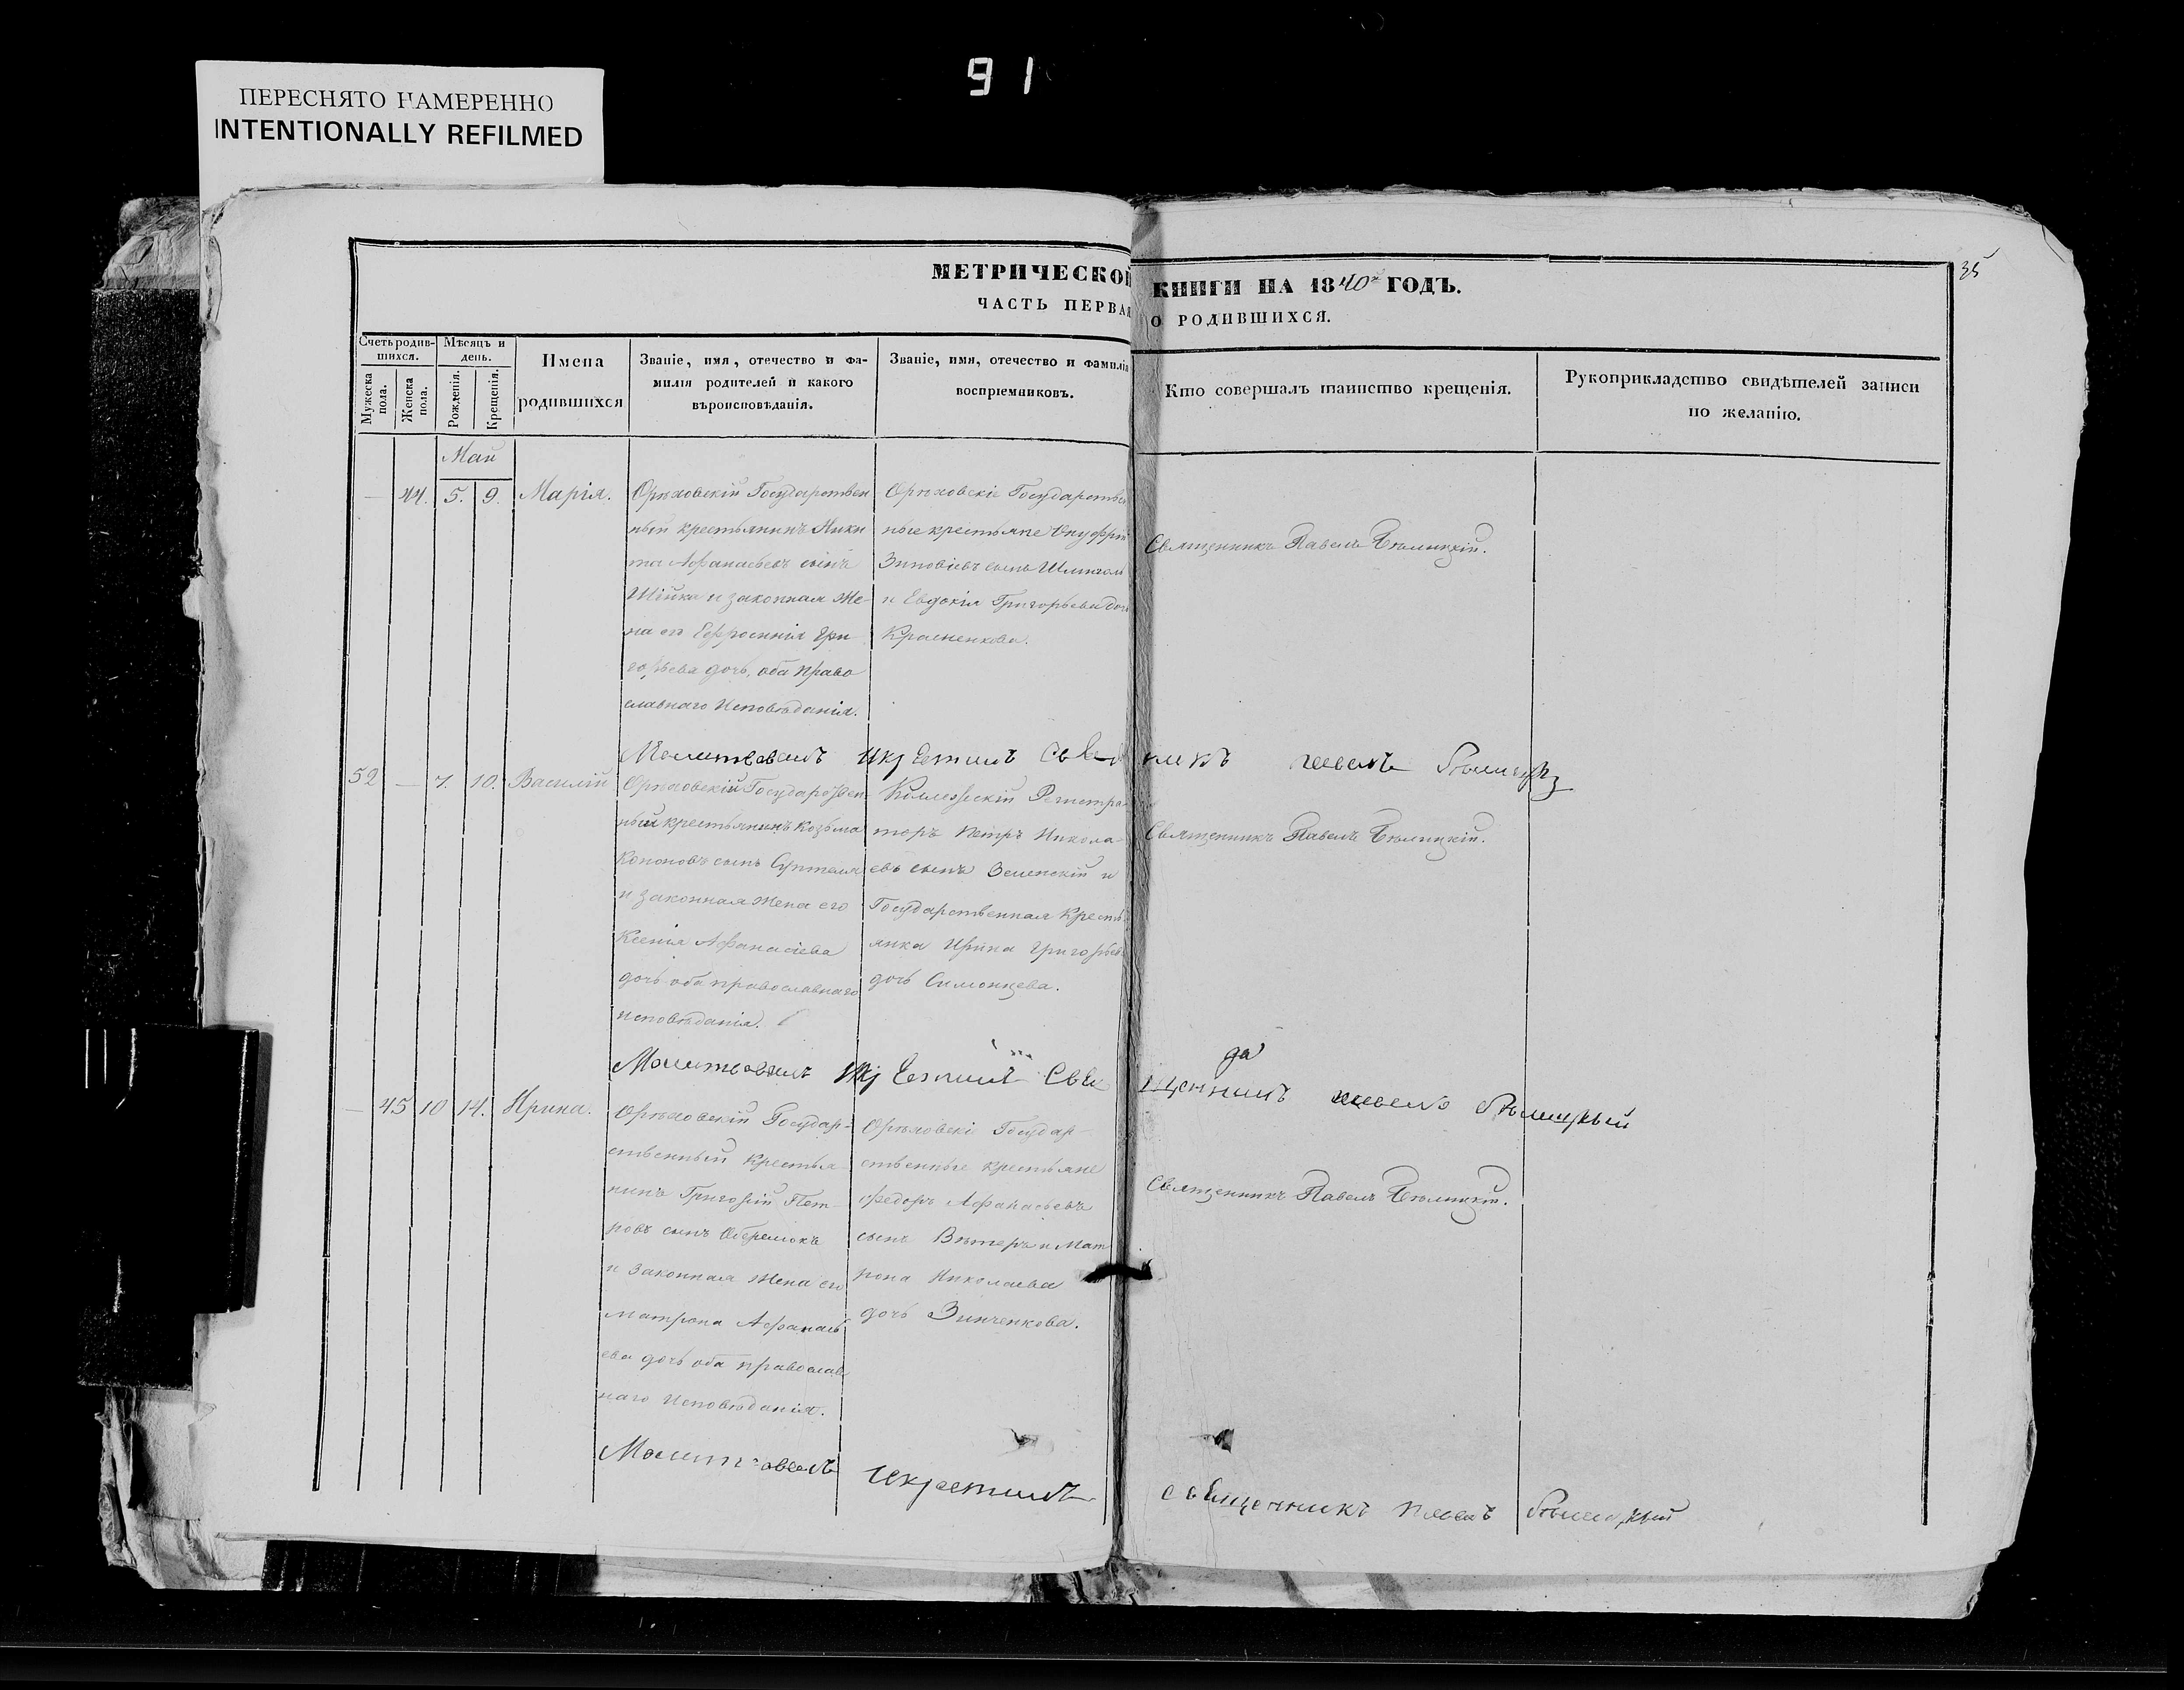 91
ПЕРЕСНЯТО НАМЕРЕННО
INTENTIONALLY REFILMED
35
МЕТРИЧЕСКОЙ КНИГИ НА 1840й ГОДЪ.
ЧАСТЬ ПЕРВАЯ О РОДИВШИХСЯ.
Счетъ родившихся.
Мужеска пола.
Женска пола.
Мѣсяцъ и день.
Рожденія.
Крещенія.
Имена родившихся
Званіе, имя, отечество и фамилія родителей и какого вѣроисповѣданія.
Званіе, имя, отечество и фамилія воспріемниковъ.
Кто совершалъ таинство крещенія.
Рукоприкладство свидѣтелей записи по желанію.
Май
— 44. 5. 9. Марія.
Орѣховскій Государствен
ный крестьянинъ Ники
та Афанасьевъ сынъ
Шійка и законная Же-
на его Ефросинія Гри
горьева дочь, оба право
славнаго Исповѣданія.
Орѣховскіе Государствен
ные крестьяне Онуфрій
Зиновіевъ сынъ
и Евдокія Григорьева доч
Красненкова.
Священникъ Павелъ Бѣлицкій.
Молитвовалъ икрестилъ
павелъ Бѣлицкій
52 — 7. 10. Василій
Орѣховскій Государствен-
ный крестьянинъ Козьма
Кононовъ сынъ
и законная жена его
Ксенія Афанасіева
дочь оба православнаго
исповѣданія.
Коллежскій Регистра
торъ Петръ Никола-
евъ сынъ Зеленскій и
Государственная Кресть
янка Ирина Григорьев
дочь Симонцева.
Священникъ Павелъ Бѣлицкій.
Молитвовалъ икрестилъ Свя
щенникъ павелъ Бѣлицкый
— 45 10 14. Ирина.
Орѣховскій Государ-
ственный Крестья-
нинъ Григорій Пет-
ровъ сынъ Оберемокъ
и законная жена его
Матрона Афанась
ева дочь оба православ
наго Исповѣданія.
Орѣховскіе Государ-
ственные крестьяне
Федоръ Афанасьевъ
сынъ Вѣтеръ и Мат
рона Николаева
дочь Зинченкова.
Священникъ Павелъ Бѣлицкій.
Молитвовалъ икрестилъ
священникъ павелъ Бѣлицкый